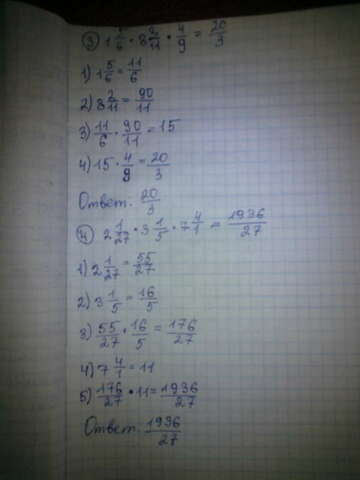 3) 1 5/6 · 8 2/11 · 4/9 = 20/3
1) 1 5/6 = 11/6
2) 8 2/11 = 90/11
3) 11/6 · 90/11 = 15
4) 15 · 4/9 = 20/3
Ответ: 20/3
4) 2 1/27 · 3 1/5 · 7 4/1 = 1936/27
1) 2 1/27 = 55/27
2) 3 1/5 = 16/5
3) 55/27 · 16/5 = 176/27
4) 7 4/1 = 11
5) 176/27 · 11 = 1936/27
Ответ: 1936/27